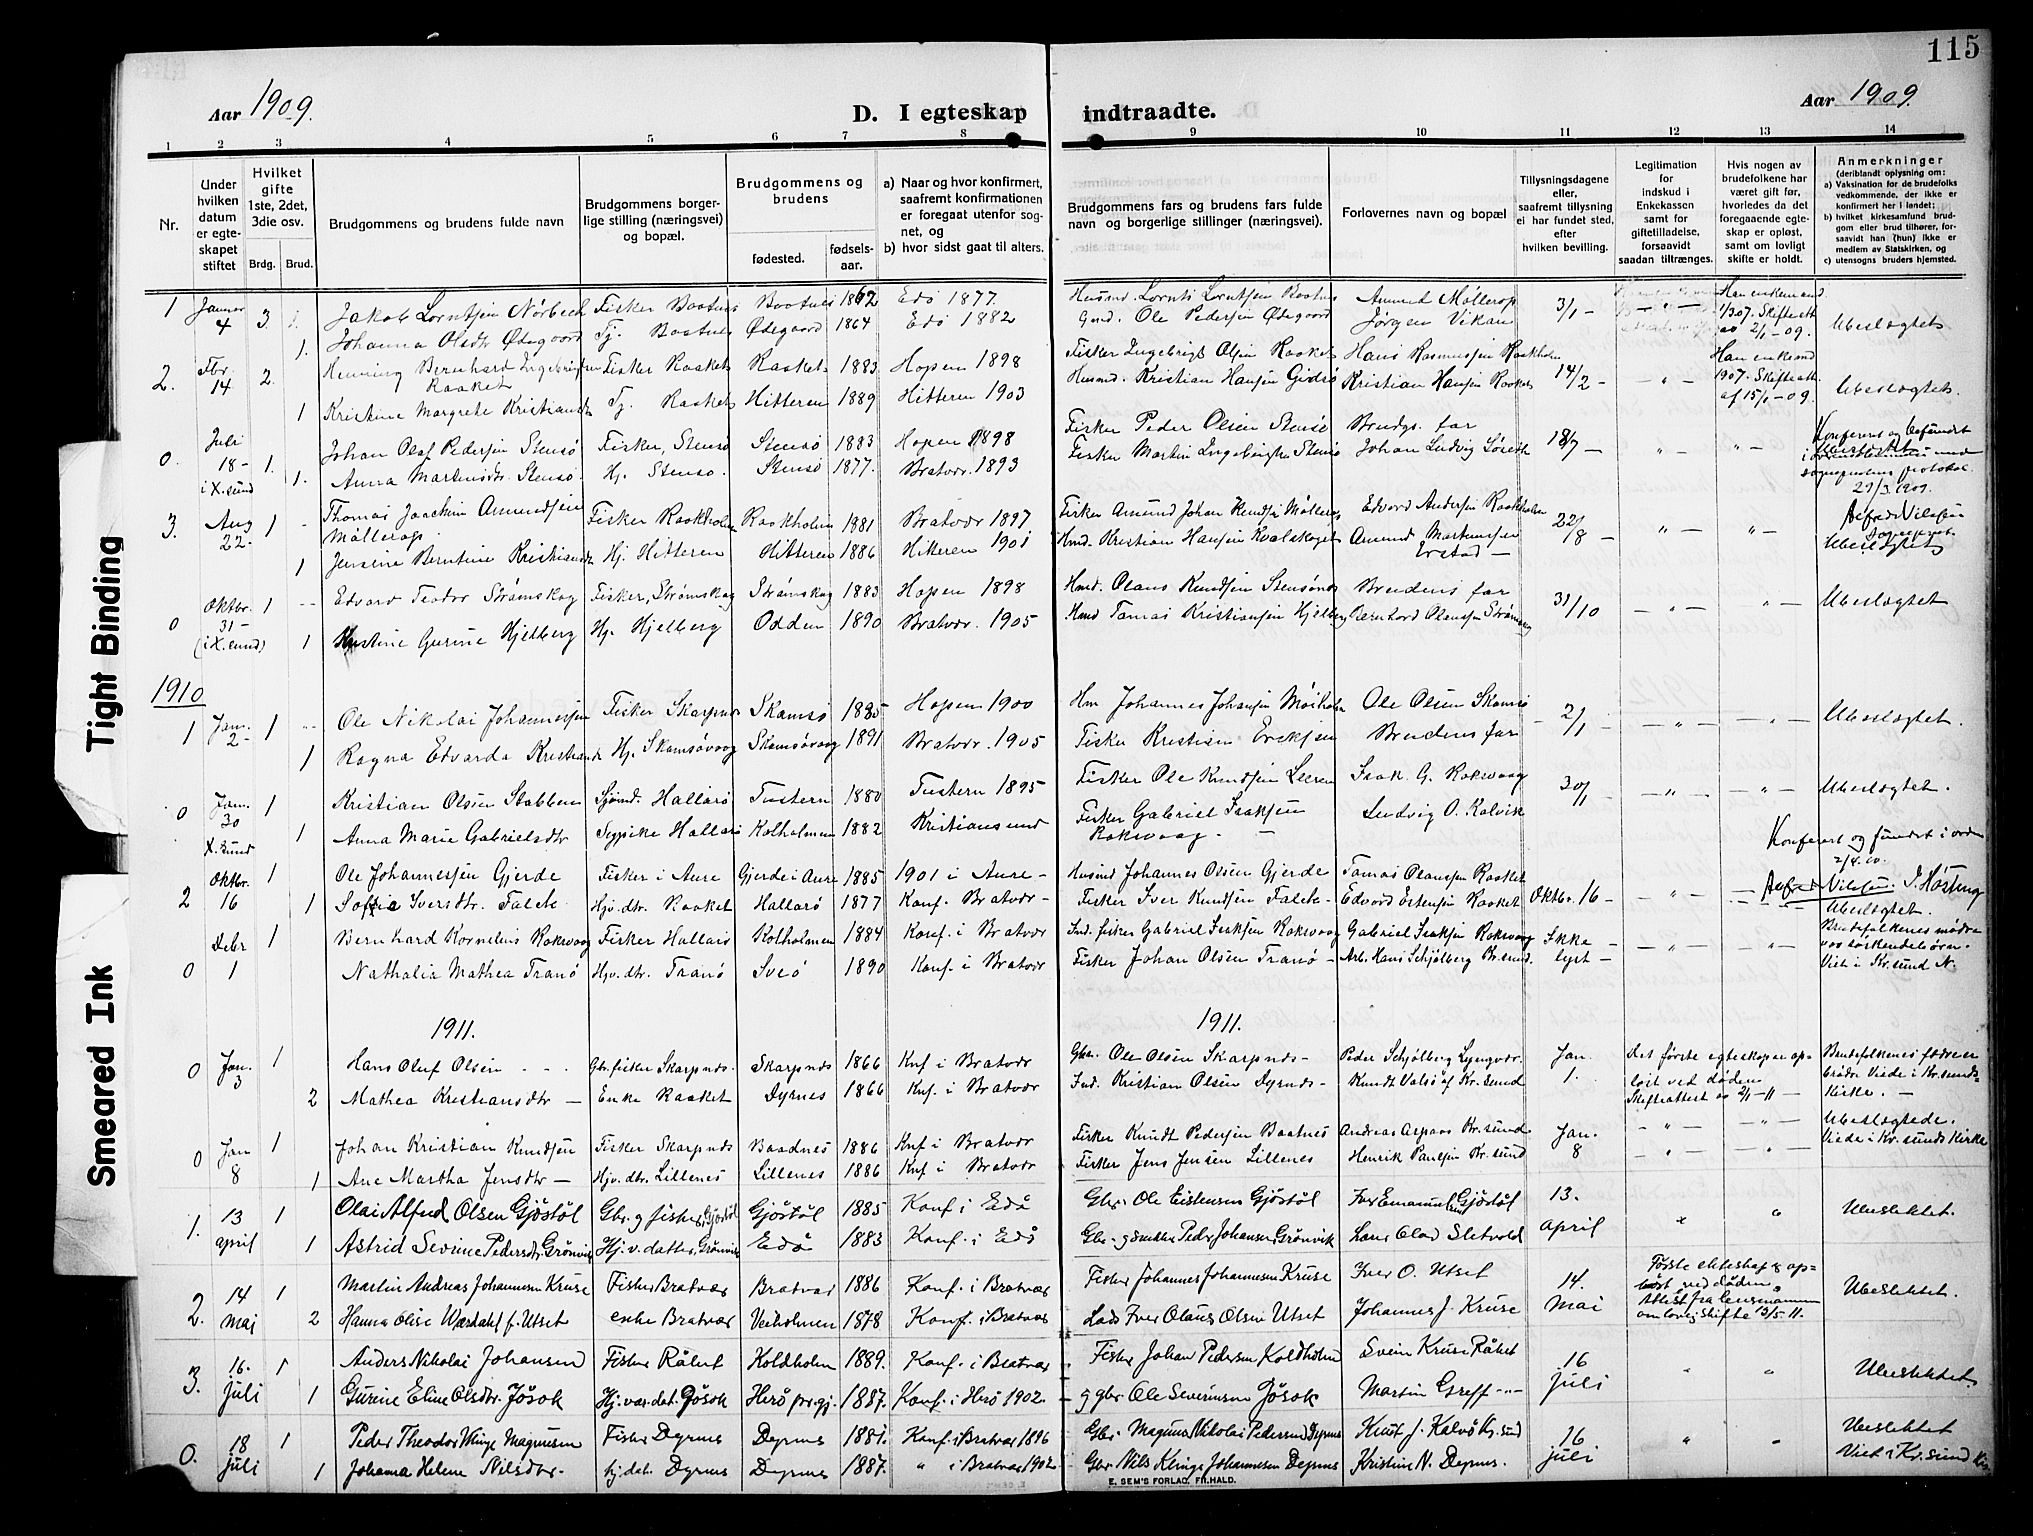 115
Aar 1909.
D. I egteskap indtraadte.
Aar 1909.
1 2 3 4 5 6 7 8 9 10 11 12 13 14
Nr.
Under hvilken datum er egteskapet stiftet
Hvilket gifte 1ste, 2det, 3die osv.
Brdg. Brud.
Brudgommens og brudens fulde navn
Brudgommens borgerlige stilling (næringsvei) og bopæl.
Brudgommens og brudens
fødested. fødselsaar.
a) Naar og hvor konfirmert, saafremt konfirmationen er foregaat utenfor sognet, og
b) hvor sidst gaat til alters.
Brudgommens fars og brudens fars fulde navn og borgerlige stillinger (næringsvei).
Forlovernes navn og bopæl
Tillysningsdagene eller, saafremt tillysning ei har fundet sted, efter hvilken bevilling.
Legitimation for indskud i Enkekassen samt for giftetilladelse, forsaavidt saadan tiltrænges.
Hvis nogen av brudefolkene har været gift før, hvorledes da det foregaaende egteskap er opløst, samt om lovlig skifte er holdt.
Anmerkninger (deriblandt oplysning om:
a) Vaksination for de brudefolks vedkommende, der ikke er konfirmert her i landet;
b) hvilket kirkesamfund brudgom eller brud tilhører, forsaavidt han (hun) ikke er medlem av Statskirken, og
c) utensogns bruders hjemsted.
1 Januar 4 3. Jakob Lorntsen Nørbech Fisker Baatnes Baatnes 1862 Edø 1877. Husmd. Lornts Lorntsen Baatnes Amund Møllerop 3/1 – Han enkemand
1. Johanna Olsdr Ødegaard Tj. Baatnes Ødegaard 1864 Edø 1882 Gmd. Ole Pedersen Ødegaard Jørgen Vikan 1/3 07. Skifteatt. av 2/1 – 09. Ubeslægtet
2. Fbr. 14 2. Henning Bernhard Ingebrigtsen Raaket Fisker Raaket Raaket 1883 Hopen 1898 Fisker Ingebrigt Olsen Raaket Hans Rasmussen Raakholm 14/2 – – " – Han enkemd
1 Kristine Margrete Kristiansdr Tj. Raaket Hitteren 1889 Hitteren 1903 Husmd. Kristian Hansen Gidsø Kristian Hansen Raaket 1907. Skifteatt. af 15/1 – 09. Ubeslægtet.
0. Juli 18 – i X.sund 1. Johan Olaf Pedersen Stensø Fisker, Stensø Stensø 1883 Hopen 1898 Fisker Peder Olsen Stensø Brudgs. far 18/7 – – " – – " – Konferert og befundet
1. Anna Martinsdr. Stensø Hj. Stensø. Stensø 1877. Bratvær. 1893 Fisker Martin Ingebrigtsen Stensø Johan Ludvig Søseth
sogneprestens protokol. 29/3. 1909.
Alfred Nilssen
3. Aug 22 – 1 Thomas Joachim Amundsen Møllerop. Fisker Raakholm Raakholm 1881 Bratvær 1897 Fisker Amund Johan Knudsen Møllerop Edvard Andersen Raakholm 22/8 – " – – " –
1 Jensine Berntine Kristiansdr Hj. Hitteren Hitteren 1886 Hitteren 1901 Hmd. Kristian Hansen Kvalskaget Amund Martinussen Erstad – Ubeslægtet
0 Oktbr. 31 – (i X.sund) 1 Edvard Teodor Strømskag Fisker, Strømskag Strømskag 1883 Hopen 1898 Hmd. Olaus Knudsen Stensønes Brudens far 31/10 – " – – " – Ubeslægtet
1 Kristine Gurine Hjelberg Hj. Hjelberg Odden 1890 Bratvær. 1905 Hmd Tomas Kristiansen Hjelberg Bernhard Olaussen Strømskag
1910
1 Jan. 2 – 1 Ole Nikolai Johannessen Fisker Skarpnes Skamsø 1885 Hopen 1900 Hm Johannes Johansen Moiholm Ole Olsen Skamsø 2/1 – – " – – " – Ubeslægtet.
1 Ragna Edvarda Kristiansdr Hj. Skamsøvaag Skamsøvaag 1891 Bratvær. 1905 Fisker Kristian Eriksen Brudens far
0 Jan. 30 X.sund 1 Kristian Olsen Stabben Sjømd. Hallarø Tustern 1880 Tustern 1895 Fisker Ole Knudsen Leeren Isak. G. Rokvaag 30/1 – " – – " – Ubeslægtet.
1 Anna Marie Gabrielsdtr Sypike Hallarø Kolholmen 1882 Kristiansund Fisker Gabriel Isaksen Rokvaag. – Ludvig O. Kalvik
Konferert og fundet i orden 2/4. 10.
Alfred Nilssen. J. Høsting
2 Oktbr. 16 1 Ole Johannessen Gjerde Fisker i Aure Gjerde i Aure 1885 1901 i Aure – Husmd Johannes Olsen Gjerde Tomas Olaussen Raaket Oktbr. 16 – – " –
1 Sofie Iversdtr. Falch. Hjv. dtr. Raaket Hallarø 1877 Konf. Bratvær – Fisker Iver Knudsen Falch – Edvard Estensen Raaket Ubeslægtet.
0 Debr 1 1 Bernhard Kornelius Rokvaag Fisker Hallarø Kolholmen 1884 Konf. i Bratvær Ind. fisker Gabriel Isaksen Rokvaag Gabriel Isaksen Rokvaag Ikke lyst – – " – – " – Brudefolkenes mødre var søskendebørn.
Nathalia Mathea Tranø Hjv. dtr. Tranø Sveø 1890 Konf. i Bratvær Fisker Johan Olsen Tranø – Arb. Hans Schjølberg Kr.sund. Viet i Kr.sund N.
1911. 1911.
0 Jan. 3 1 Hans Oluf Olsen - - - Gbr. fisker Skarpnes. Skarpnes 1866 Knf i Bratvær Gbr. Ole Olsen Skarpnes – Peder Schjølberg Lyngvær. Jan. 1. Det første egteskap er opløst ved døden Skifteattest av 2/1 – 11 – Brudefolkenes fædre er brødre Viede i Kr.sunds Kirke. –
2 Mathea Kristiansdtr – Enke Raaket Dyrnes 1866 Knf. i Bratvær Ind. Kristian Olsen Dyrnes – Knudt Valsø af Kr.sund
0 Jan 8 1 Johan Kristian Knudsen Fisker Skarpnes Baadnes 1886 Knf i Bratvær Fisker Knudt Pedersen Baatnes Andreas Aspaas Kr.sund Jan. 8 – " – – " – Ubeslægtede.
1 Ane Martha Jensdtr – Hjv. dtr. Lillenes Lillenes 1886 Knf i Bratvær Fisker Jens Jensen Lillenes Henrik Paulsen Kr.sund – " – – " – Viede i Kr.sunds Kirke
1. 13 april 1 Olai Alfred Olsen Gjøstøl Gbr. og fisker, Gjøstøl Gjøstøl 1885 Konf. i Edø Gbr. Ole Eistensen Gjøstøl Iver Emanuelsen Gjøstøl 13. april " " Ubeslektet.
1 Astrid Sevrine Pedersdtr. Grønvik Hj. v. datter, Grønvik Edø 1883 Konf. i Edø Gbr. og smed Peder Johansen Grønvik Lars Olad Sletvold
2. 14 mai 1 Martin Andreas Johannesen Kruse Fisker Bratvær Bratvær 1886 Konf. i Bratvær Fisker Johannes Johannesen Kruse Iver O. Utset 14. Mai Første ekteskap er opløst ved døden Attest fra lensmannen om lovlig skifte 13/5 11. Ubeslektet.
2 Hanna Olise Wærdahl f. Utset enke Bratvær Veiholmen 1878 Konf. i Bratvær Lods Iver Olaus Olsen Utset Johannes J. Kruse
3. 16. juli 1 Anders Nikolai Johansen Fisker Råket Koldholm 1889. Konf. i Bratvær Fisker Johan Pedersen Koldholm Svein Kruse Råket 16 juli " " Ubeslektet.
1 Gurine Eline Olsdtr. Jøsok Hj. vær. det. Jøsok Herø pr.gj. 1887. Konf. i Herø 1902. gbr. Ole Severinsen Jøsok Martin Greff – " –
0. 18 juli 1 Peder Theodor Klinge Magnusen Fisker Dyrnes Dyrnes 1881. Konf. i Bratvær 1896 Gbr. Magnus Nikolai Pedersen Dyrnes Knut J. Kalvø Kr.sund 16 juli " " Ubeslektet
1 Johanna Helene Nilsdtr. hj. det. Dyrnes Dyrnes 1887. " i Bratvær 1902. Gbr. Nils Klinge Johannesen Dyrnes Kristine N. Dyrnes. Viet i Kr.sund
E. SEM'S FORLAG, FR.HALD.
Tight Binding
Smeared Ink